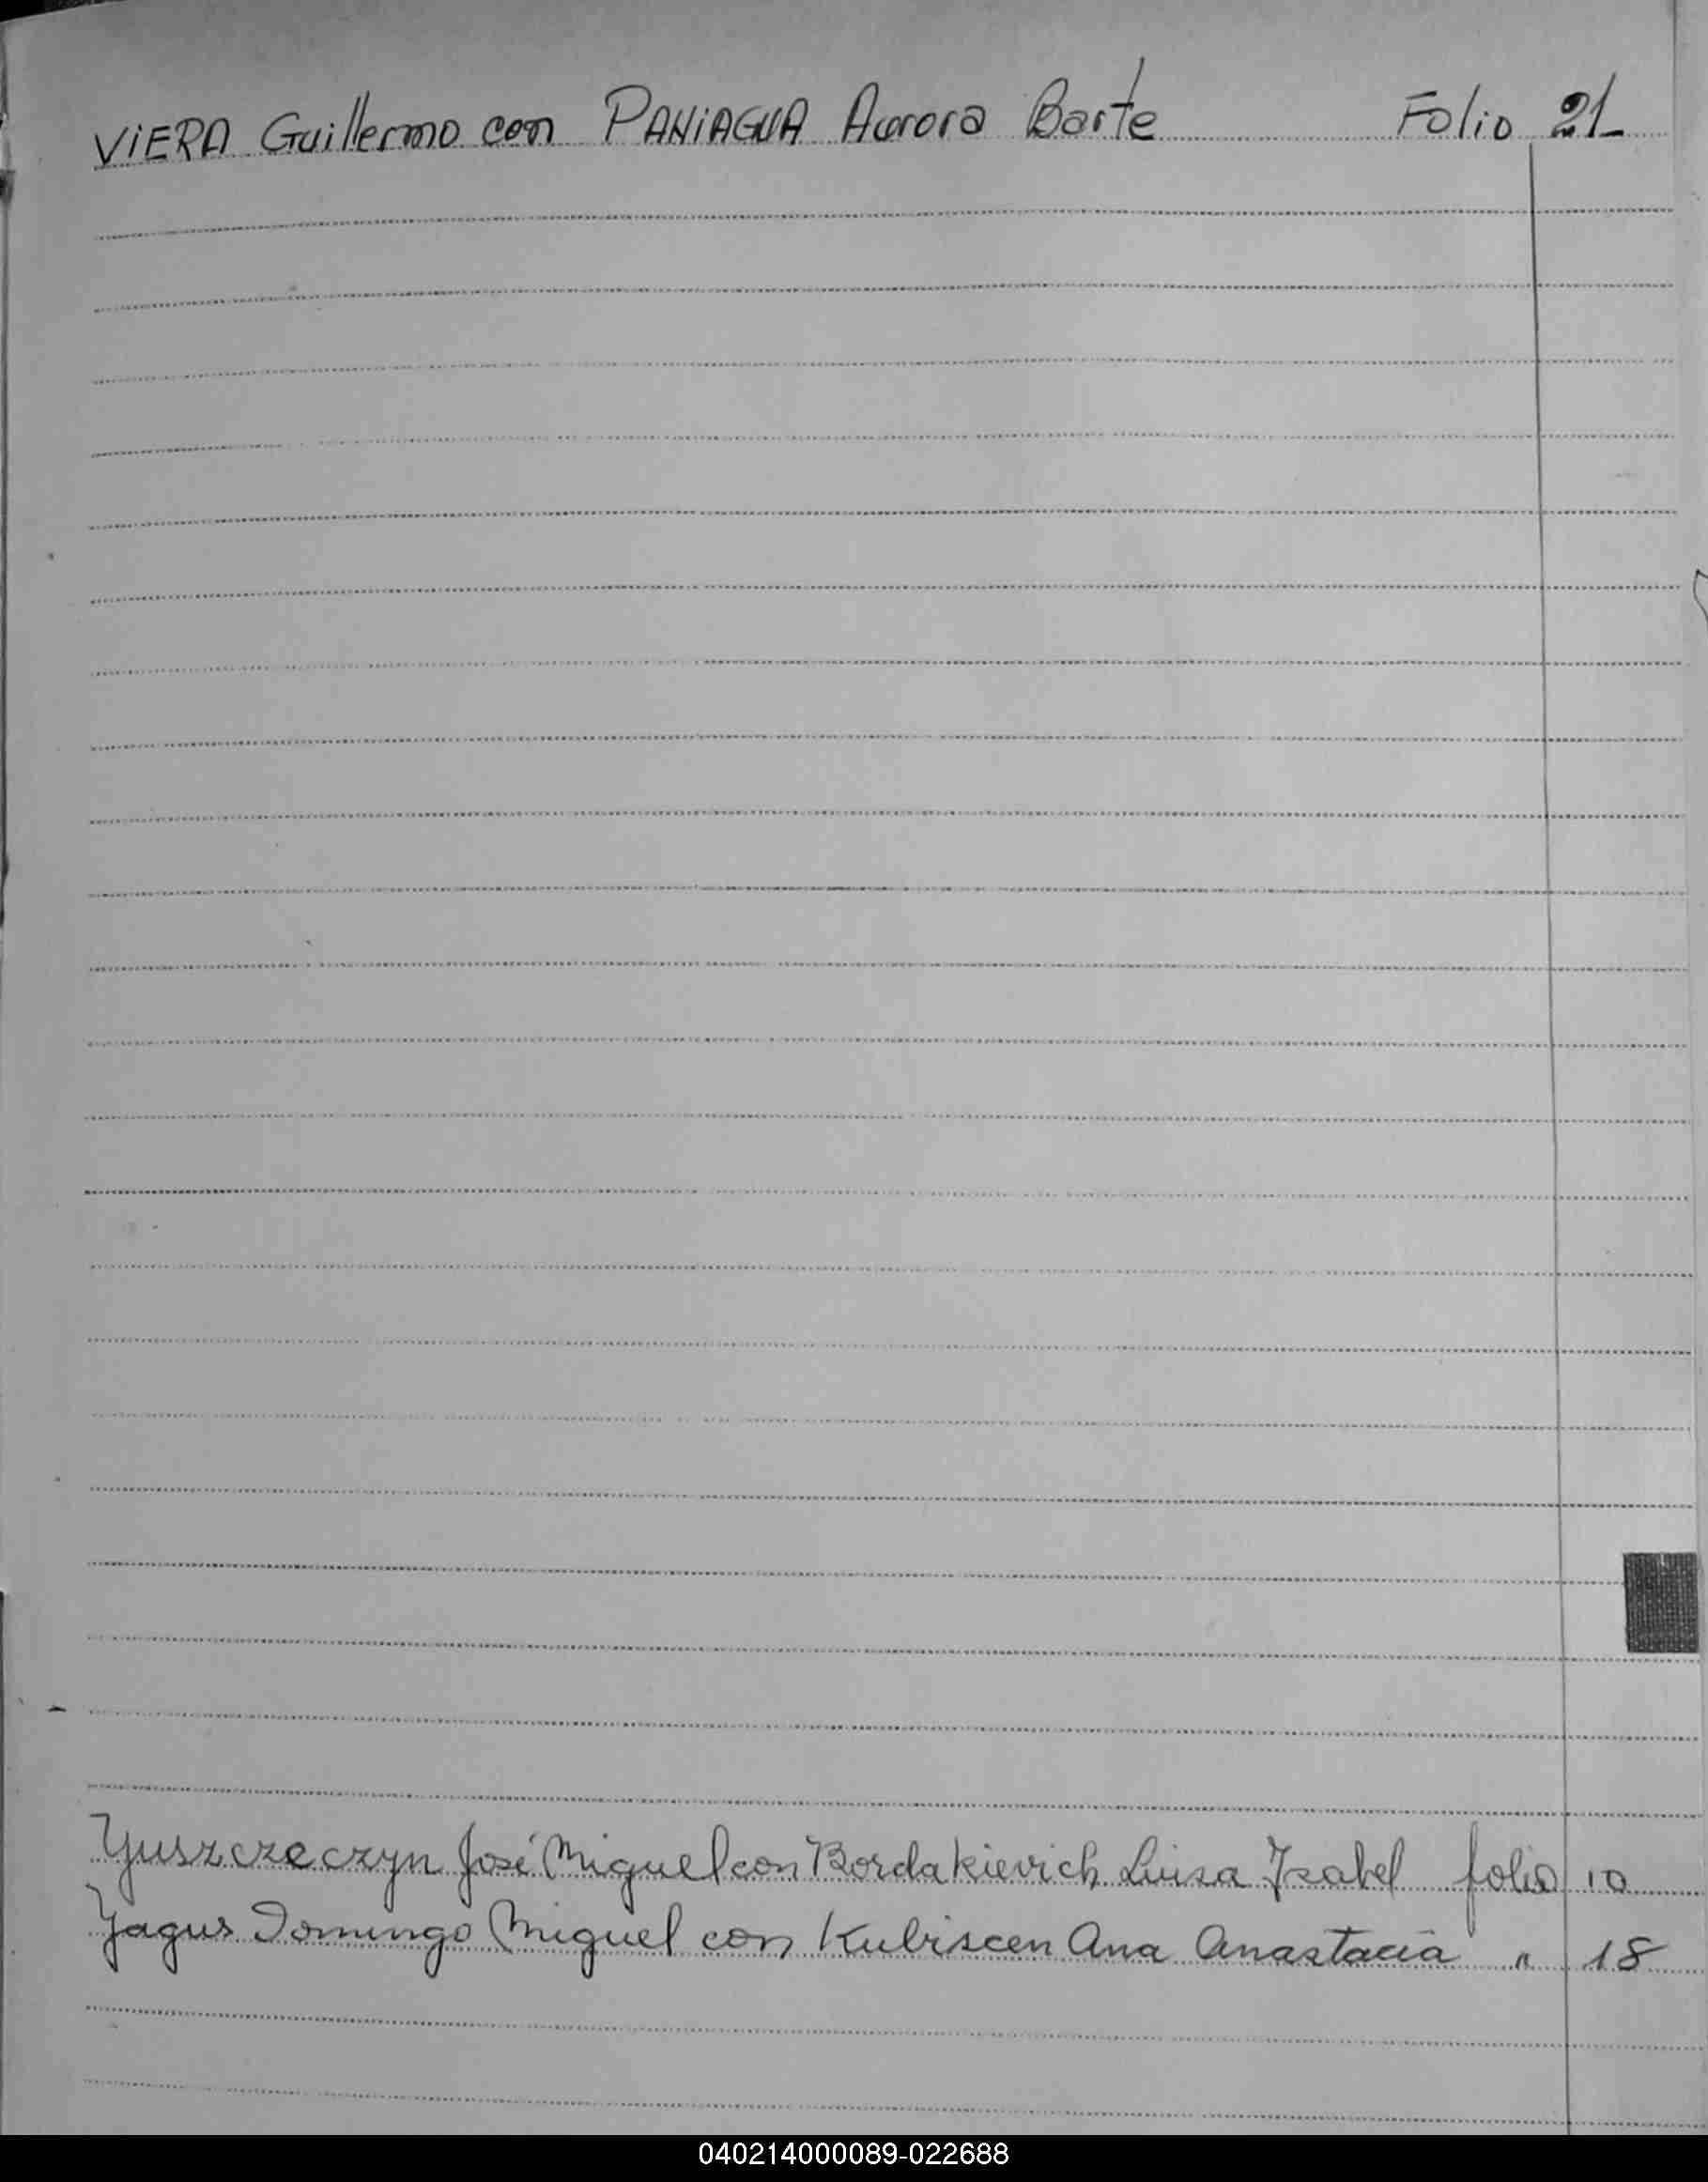 VIERA Guillermo con PANIAGUA Aurora Barte Folio 21
Yuszczeczyn José Miguel con Bordakievich Luisa Isabel folio 10
Yagus Domingo Miguel con Kubiscen Ana Anastacia " 18
040214000089-022688